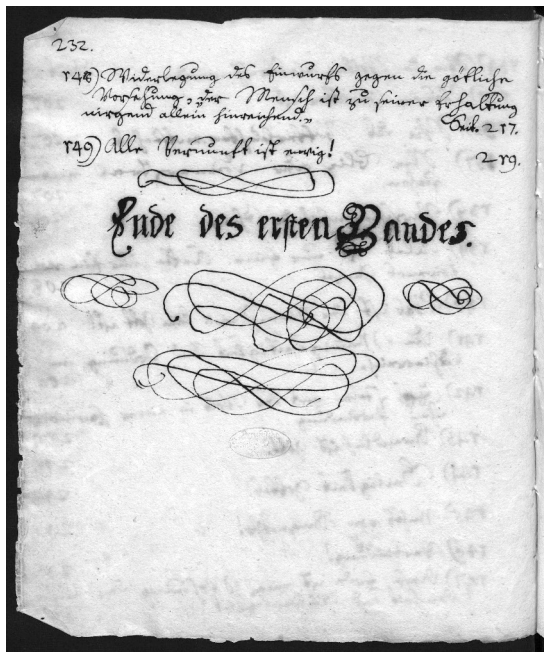 232.
148) Widerlegung des Einwurfs gegen die götliche
Vorsehung, „der Mensch ist zu seiner Erhaltung
nirgend allein hinreichend.„
Seite 217.
149) Alle Vernunft ist einig!
219.
Ende des ersten Bandes.